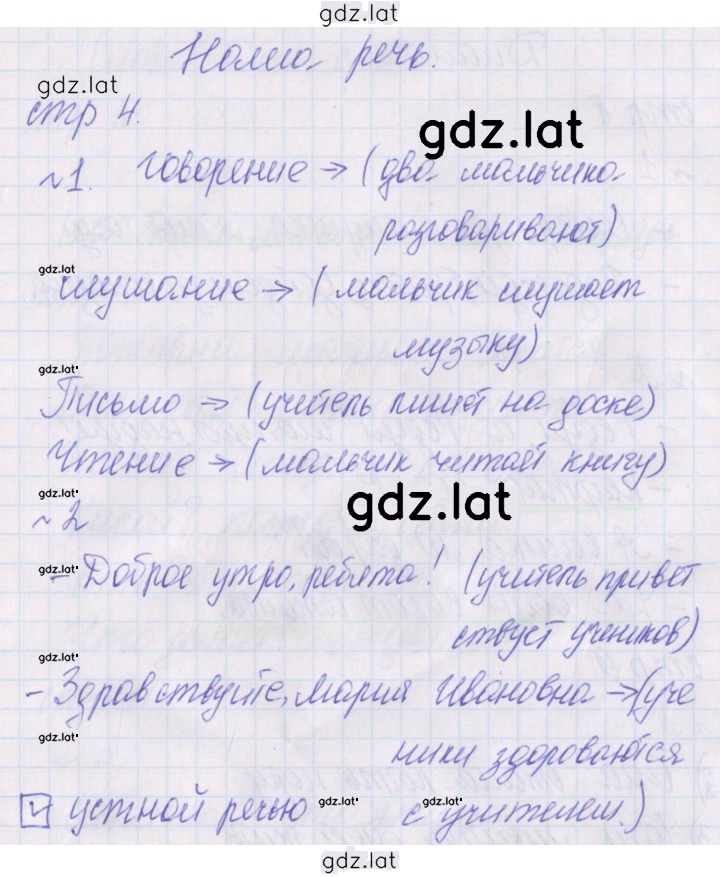 gdz.lat
Наша речь.
gdz.lat
стр 4.
gdz.lat
~1. говорение → (два мальчика
разговаривают)
gdz.lat
слушание → (мальчик слушает
музыку)
gdz.lat
Письмо → (учитель пишет на доске)
Чтение → (мальчик читает книгу)
gdz.lat
gdz.lat
~2
gdz.lat
- Доброе утро, ребята! (учитель привет
ствует учеников)
gdz.lat
- Здравствуйте, Мария Ивановна → (уче
gdz.lat
ники здороваются
ч устной речью gdz.lat с учителем.)
gdz.lat
gdz.lat